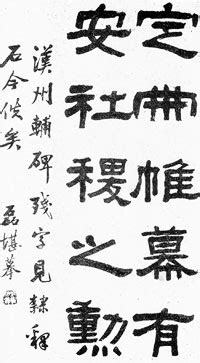 定冊帷幕有
安社稷之勳
漢州輔碑殘字見隸釋
石今佚矣 磊堪摹